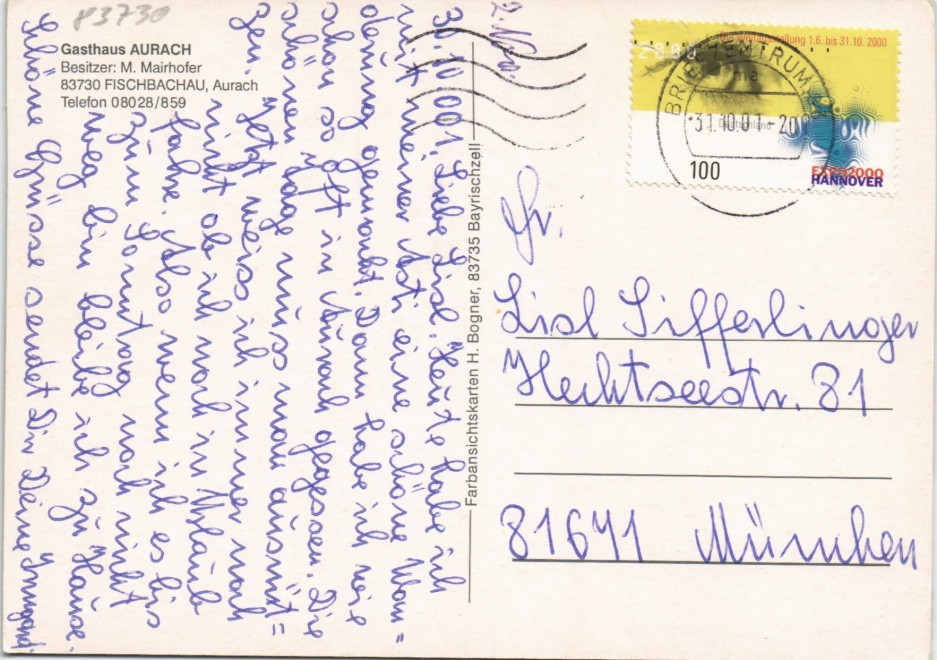 83730
Gasthaus AURACH
Besitzer: M. Mairhofer
83730 FISCHBACHAU, Aurach
Telefon 08028/859
2. Nov.
31.10.001. Liebe Lisl. Heute habe ich
mit meiner Asti eine schöne Wan=
derung gemacht. Dann habe ich wie
schon so oft in Aurach gegessen. Die
schönen Tage muss man ausnüt=
zen. Jetzt weiss ich immer noch
nicht ob ich noch in Urlaub
fahre. Also wenn ich es bis
zum Sonntag noch nicht
weg bin bleibe ich zu Hause.
Schöne Grüsse sendet Dir Deine Irmgard.
Farbansichtskarten H. Bogner, 83735 Bayrischzell
Die Weltausstellung 1.6. bis 31.10. 2000
BRIEFZENTRUM
31.10.01-20
Deutschland
100
EXPO2000
HANNOVER
Fr.
Lisl Sifferlinger
Hechtseestr. 81
81671 München